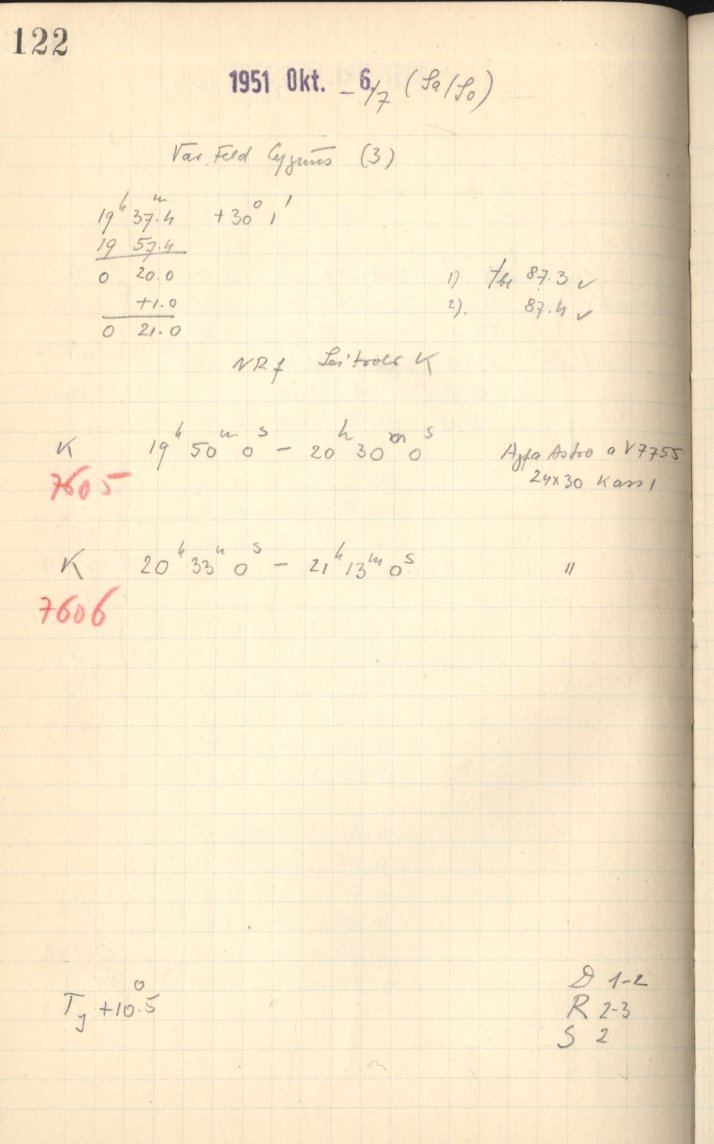 122
1951 Okt. 6./7 (Sa/So)
Var. Feld Cygnus (3)
19ʰ 37ᵐ.4 +30° 1'
19 57.4
0 20.0
+1.0
0 21.0
1) 87.3 ✓
2). 87.4 ✓
NRf K
K 19ʰ 50ᵐ 0ˢ – 20ʰ 30ᵐ 0ˢ Agfa Astro a V7755
7605 24x30 Kass 1
K 20ʰ 33ᵐ 0ˢ – 21ʰ 13ᵐ 0ˢ "
7606
D 1-2
T +10°.5 R 2-3
S 2